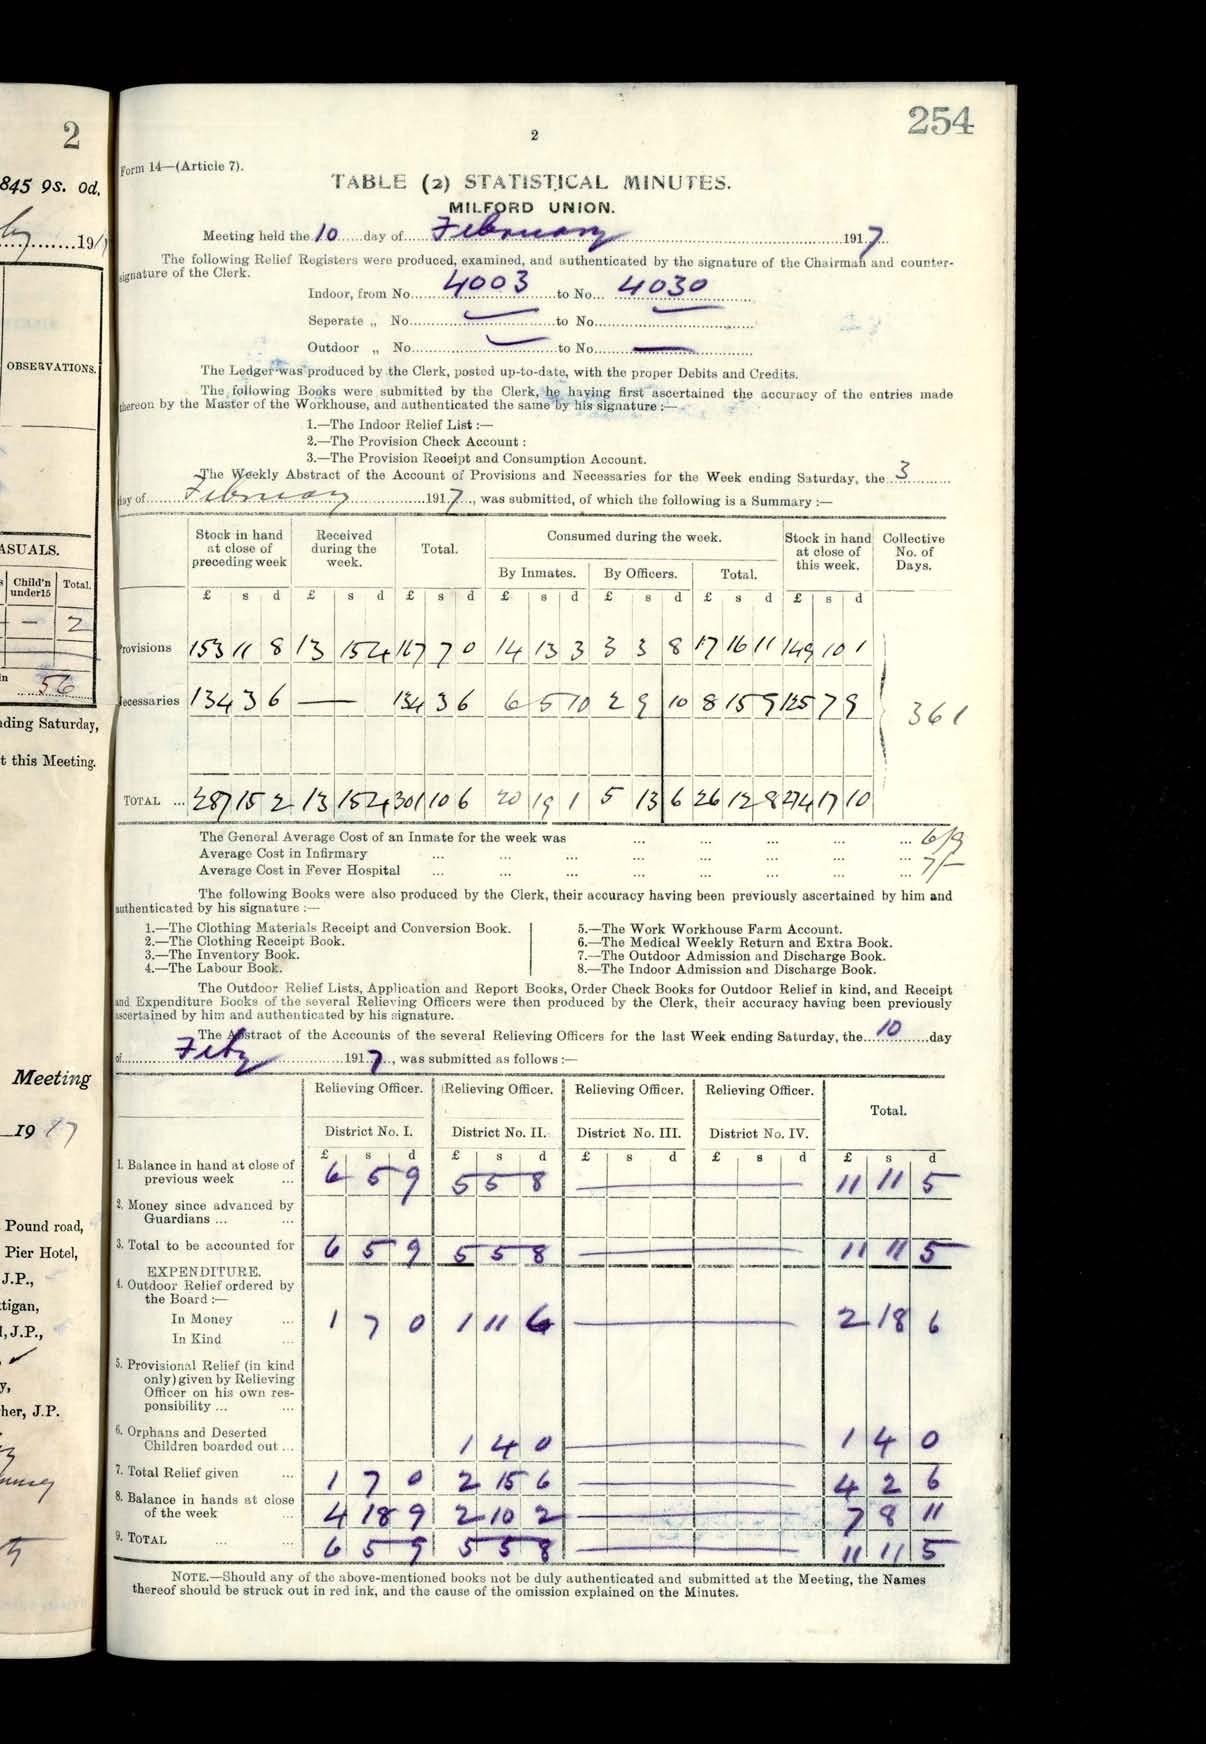 2
845 9s. 0d.
19
OBSERVATIONS.
ASUALS.
Child'n under15 Total.
— 2
56
ding Saturday,
t this Meeting.
Meeting
19 17
Pound road,
Pier Hotel,
J.P.,
tigan,
J.P.,
y,
her, J.P.
254
2
Form 14—(Article 7).
TABLE (2) STATISTICAL MINUTES.
MILFORD UNION.
Meeting held the 10 day of February 1917
The following Relief Registers were produced, examined, and authenticated by the signature of the Chairman and counter-
signature of the Clerk.
Indoor, from No. 4003 to No. 4030
Seperate „ No. to No.
Outdoor „ No. to No.
The Ledger was produced by the Clerk, posted up-to-date, with the proper Debits and Credits.
The following Books were submitted by the Clerk, he having first ascertained the accuracy of the entries made
thereon by the Master of the Workhouse, and authenticated the same by his signature :—
1.—The Indoor Relief List :—
2.—The Provision Check Account :
3.—The Provision Receipt and Consumption Account.
The Weekly Abstract of the Account of Provisions and Necessaries for the Week ending Saturday, the 3
day of February 1917, was submitted, of which the following is a Summary :—
Stock in hand at close of preceding week Received during the week. Total. Consumed during the week. Stock in hand at close of this week. Collective No. of Days.
By Inmates. By Officers. Total.
£ s d £ s d £ s d £ s d £ s d £ s d £ s d
Provisions 153 11 8 13 15 4 167 7 0 14 13 3 3 3 8 17 16 11 149 10 1
Necessaries 134 3 6 — 134 3 6 6 5 10 2 9 10 8 15 9 125 7 9
361
TOTAL ... 287 15 2 13 15 4 301 10 6 20 19 1 5 13 6 26 12 8 274 17 10
The General Average Cost of an Inmate for the week was ... ... ... ... ... 6/9
Average Cost in Infirmary ... ... ... ... ... ... ... ... 7/-
Average Cost in Fever Hospital ... ... ... ... ... ... ... ...
The following Books were also produced by the Clerk, their accuracy having been previously ascertained by him and
authenticated by his signature :—
1.—The Clothing Materials Receipt and Conversion Book.
2.—The Clothing Receipt Book.
3.—The Inventory Book.
4.—The Labour Book.
5.—The Work Workhouse Farm Account.
6.—The Medical Weekly Return and Extra Book.
7.—The Outdoor Admission and Discharge Book.
8.—The Indoor Admission and Discharge Book.
The Outdoor Relief Lists, Application and Report Books, Order Check Books for Outdoor Relief in kind, and Receipt
and Expenditure Books of the several Relieving Officers were then produced by the Clerk, their accuracy having been previously
ascertained by him and authenticated by his signature.
The Abstract of the Accounts of the several Relieving Officers for the last Week ending Saturday, the 10 day
of Feby 1917, was submitted as follows :—
Relieving Officer. Relieving Officer. Relieving Officer. Relieving Officer. Total.
District No. I. District No. II. District No. III. District No. IV.
£ s d £ s d £ s d £ s d £ s d
1. Balance in hand at close of
previous week ... 6 5 9 5 5 8 — 11 11 5
2. Money since advanced by
Guardians ... ...
3. Total to be accounted for 6 5 9 5 5 8 — 11 11 5
EXPENDITURE.
4. Outdoor Relief ordered by
the Board :—
In Money ... 1 7 0 1 11 6 — 2 18 6
In Kind ...
5. Provisional Relief (in kind
only) given by Relieving
Officer on his own res-
ponsibility ... ...
6. Orphans and Deserted
Children boarded out ... 1 4 0 — 1 4 0
7. Total Relief given ... 1 7 0 2 15 6 — 4 2 6
8. Balance in hands at close
of the week ... 4 18 9 2 10 2 — 7 8 11
9. TOTAL ... ... 6 5 9 5 5 8 — 11 11 5
NOTE.—Should any of the above-mentioned books not be duly authenticated and submitted at the Meeting, the Names
thereof should be struck out in red ink, and the cause of the omission explained on the Minutes.